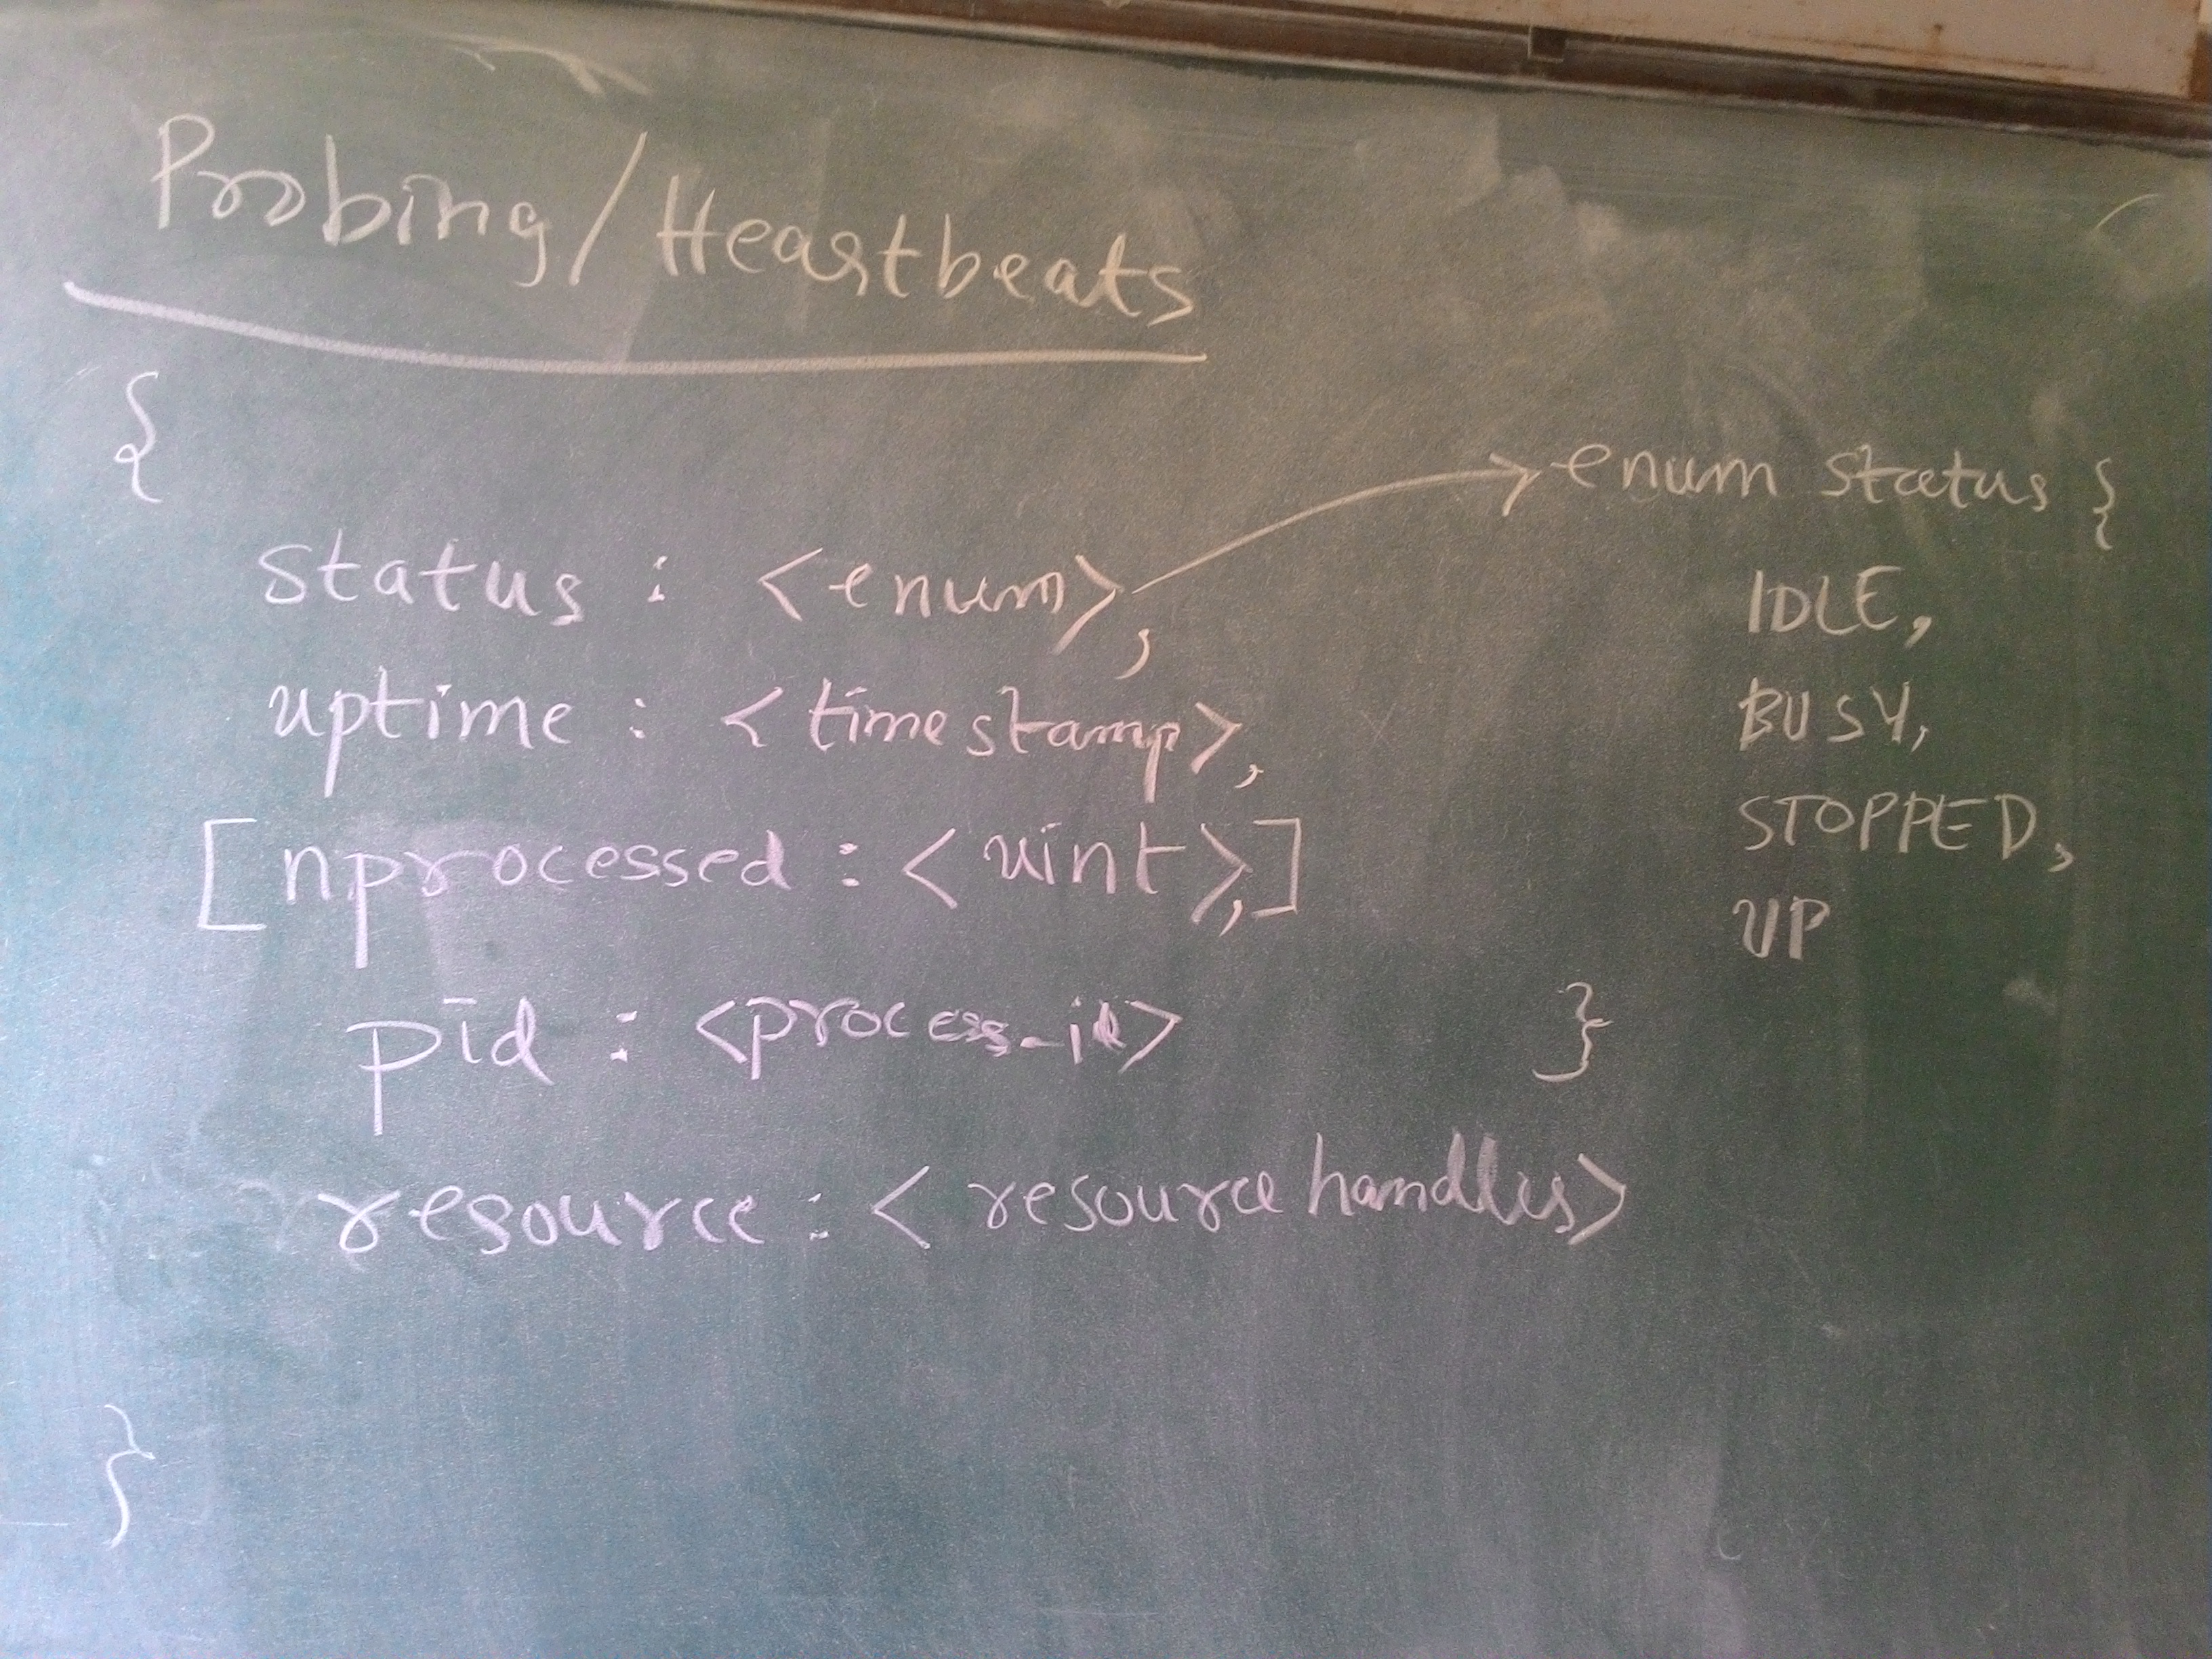 Probing/Heartbeats
{
status : <enum>,
uptime : <timestamp>,
[nprocessed : <uint>,]
pid : <process_id>
resource : <resource handles>
}
enum status {
IDLE,
BUSY,
STOPPED,
UP
}